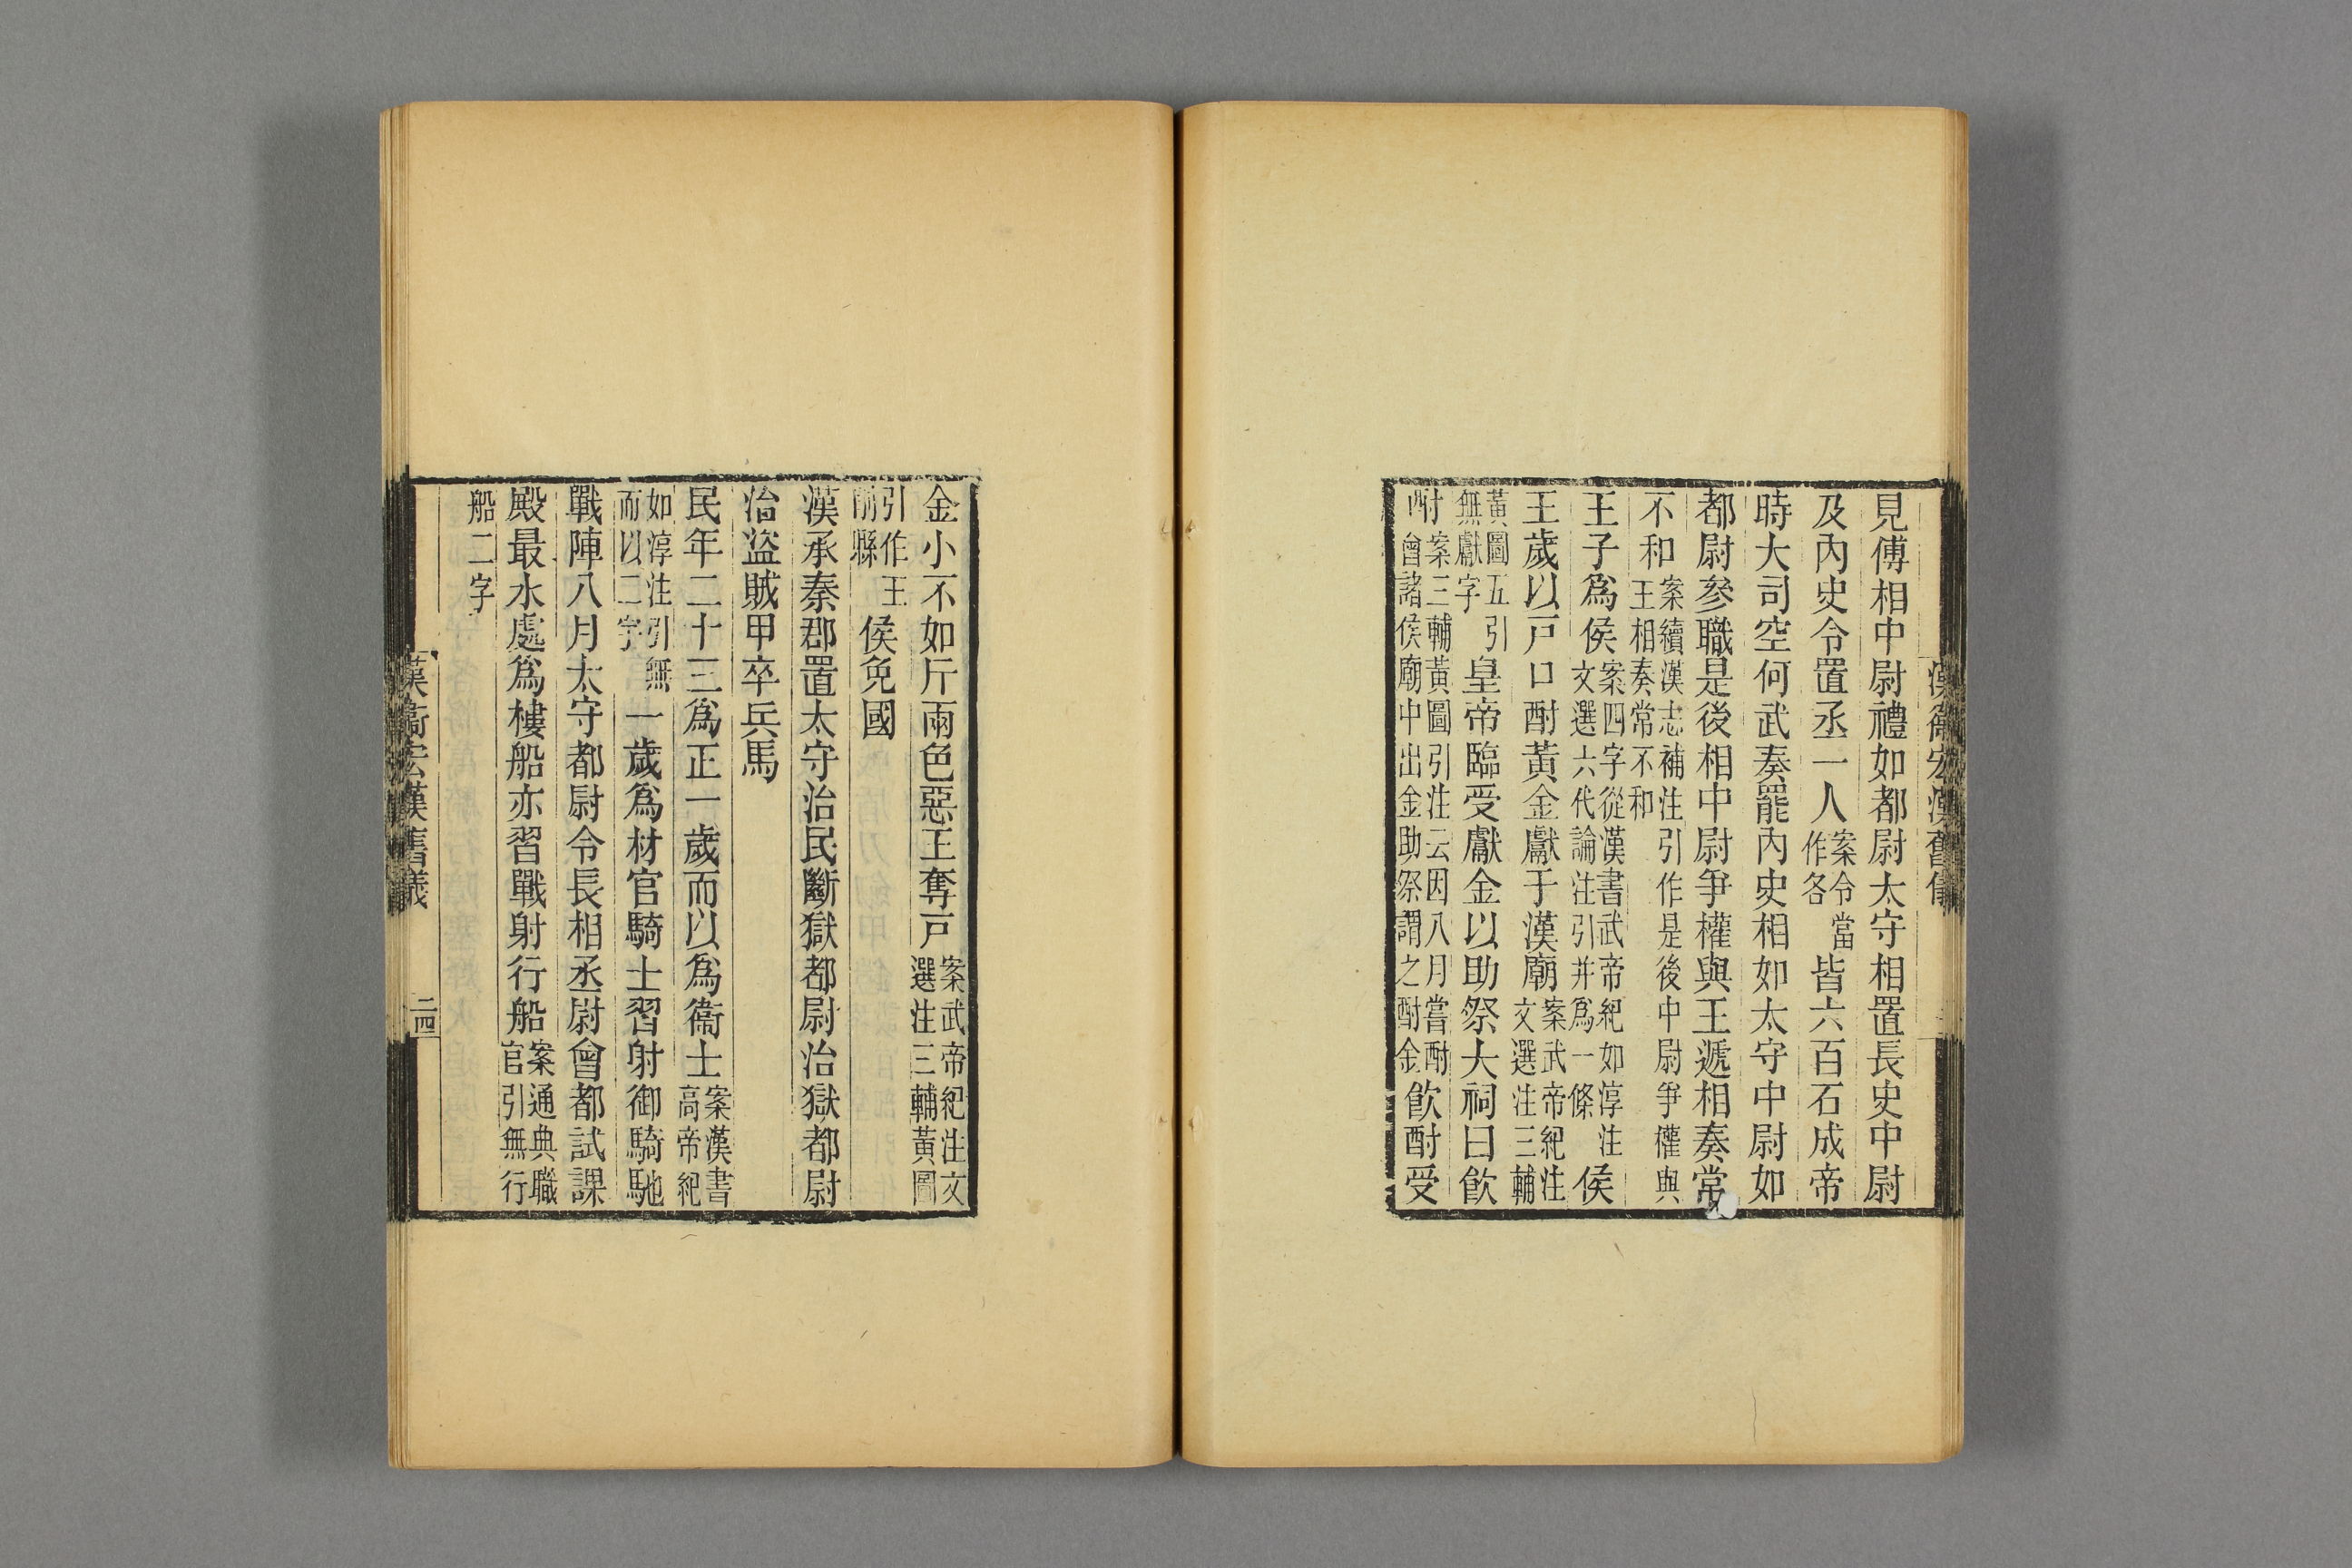 漢衞宏漢舊儀
見傅相中尉禮如都尉太守相置長史中尉
及內史令置丞一人案令當作各皆六百石成帝
時大司空何武奏罷內史相如太守中尉如
都尉參職是後相中尉爭權與王遞相奏常
不和案續漢志補注引作是後中尉爭權與王相奏常不和
王子爲侯案四字從漢書武帝紀如淳注文選六代論注引并爲一條侯
王歲以戸口酎黃金獻于漢廟案武帝紀注文選注三輔
黃圖五引無獻字皇帝臨受獻金以助祭大祠曰飮
酎案三輔黃圖引注云因八月嘗酎會諸侯廟中出金助祭謂之酎金飮酎受
金小不如斤兩色惡王奪戸案武帝紀注文選注三輔黃圖
引作王削縣侯免國
漢承秦郡置太守治民斷獄都尉治獄都尉
治盜賊甲卒兵馬
民年二十三爲正一歲而以爲衞士案漢書高帝紀
如淳注引無而以二字一歲爲材官騎士習射御騎馳
戰陣八月太守都尉令長相丞尉會都試課
殿最水處爲樓船亦習戰射行船案通典職官引無行
船二字
漢衞宏漢舊儀
二四